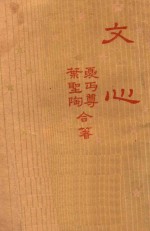 文心
夏丏尊
葉聖陶
合著